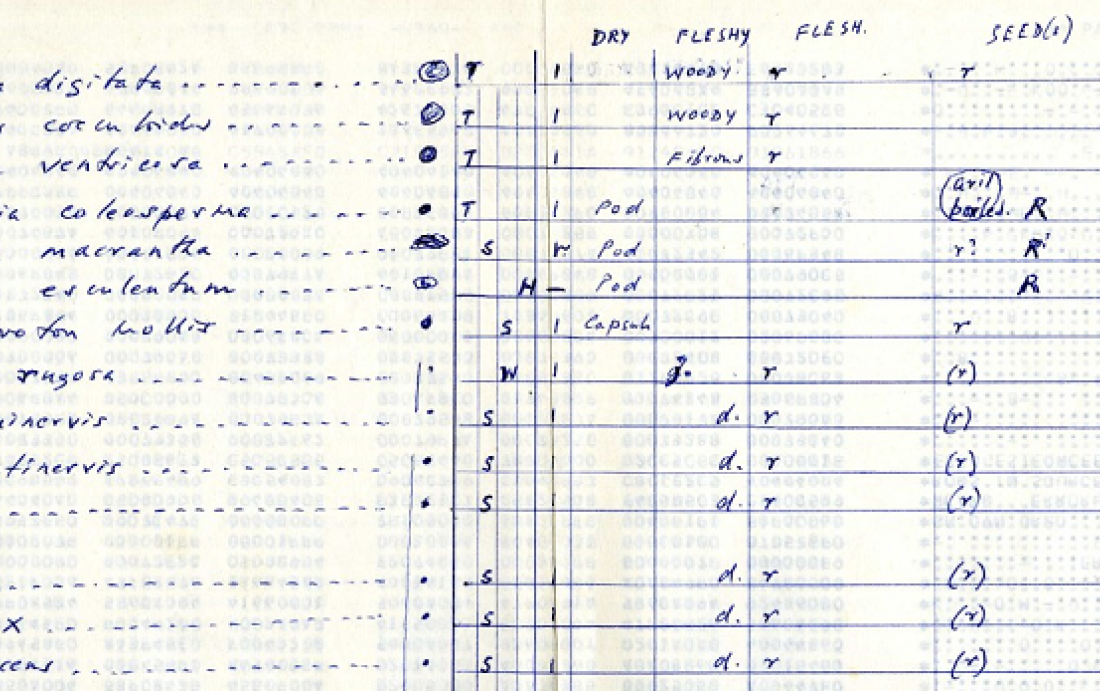 DRY FLESHY FLESH. SEED(s)
digitata T 1 WOODY r r
T 1 WOODY r
ventricosa T 1 Fibrous r
ia coleosperma T 1 Pod (aril) boiled R
macrantha S W Pod r? R
esculentum H — Pod R
S 1 Capsule r
rugosa W 1 r (r)
inervis S 1 d. r (r)
tinervis S 1 d. r (r)
S 1 d. r (r)
S 1 d. r (r)
x S 1 d. r (r)
cens S 1 d. r (r)